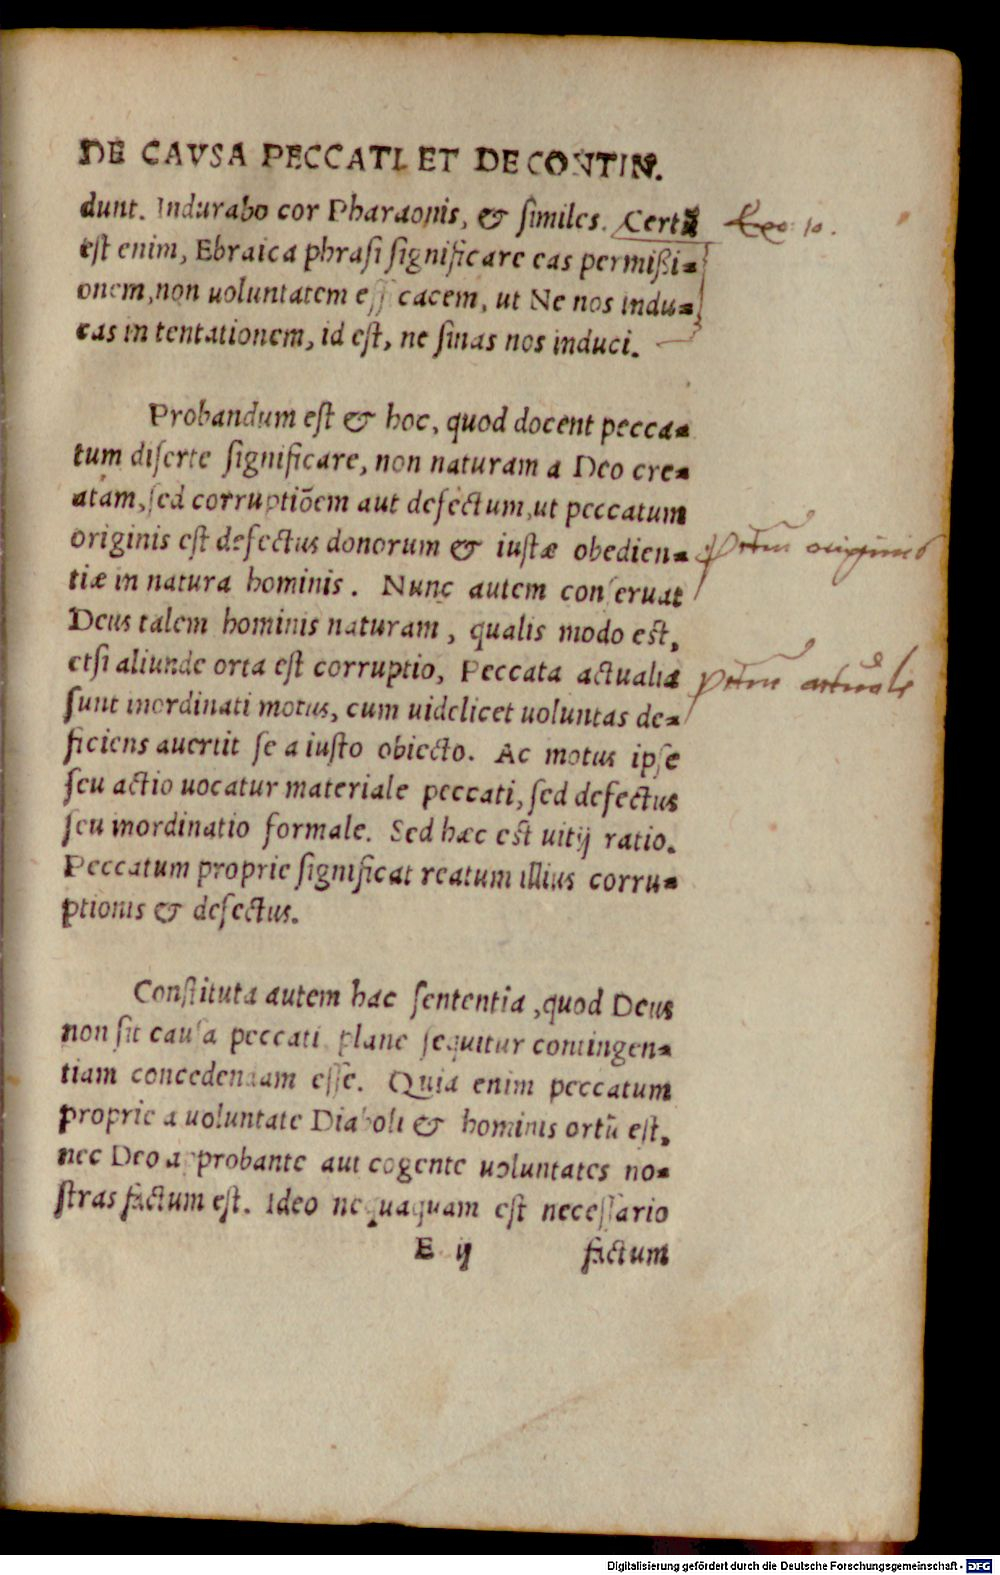 DE CAVSA PECCATI ET DE CONTIN.
dunt. Indurabo cor Pharaonis, & ſimiles. Certū
Exo: 10.
eſt enim, Ebraica phraſi ſignificare eas permißi⸗
onem, non uoluntatem efficacem, ut Ne nos indu⸗
cas in tentationem, id eſt, ne ſinas nos induci.
Probandum eſt & hoc, quod docent pecca⸗
tum diſerte ſignificare, non naturam a Deo cre⸗
atam, ſed corruptiõem aut defectum, ut peccatum
originis eſt defectus donorum & iuſtæ obedien⸗
pctm̄ originis
tiæ in natura hominis. Nunc autem conſeruat
Deus talem hominis naturam, qualis modo eſt,
etſi aliunde orta eſt corruptio, Peccata actualia
pctm̄ actuale
ſunt inordinati motus, cum uidelicet uoluntas de⸗
ficiens auertit ſe a iuſto obiecto. Ac motus ipſe
ſeu actio uocatur materiale peccati, ſed defectus
ſeu inordinatio formale. Sed hæc eſt uitij ratio.
Peccatum proprie ſignificat reatum illius corru⸗
ptionis & defectus.
Conſtituta autem hac ſententia, quod Deus
non ſit cauſa peccati plane ſequitur contingen⸗
tiam concedendam eſſe. Quia enim peccatum
proprie a uoluntate Diaboli & hominis ortū eſt,
nec Deo approbante aut cogente uoluntates no⸗
ſtras factum eſt. Ideo nequaquam eſt neceſſario
E ij factum
Digitalisierung gefördert durch die Deutsche Forschungsgemeinschaft - DFG